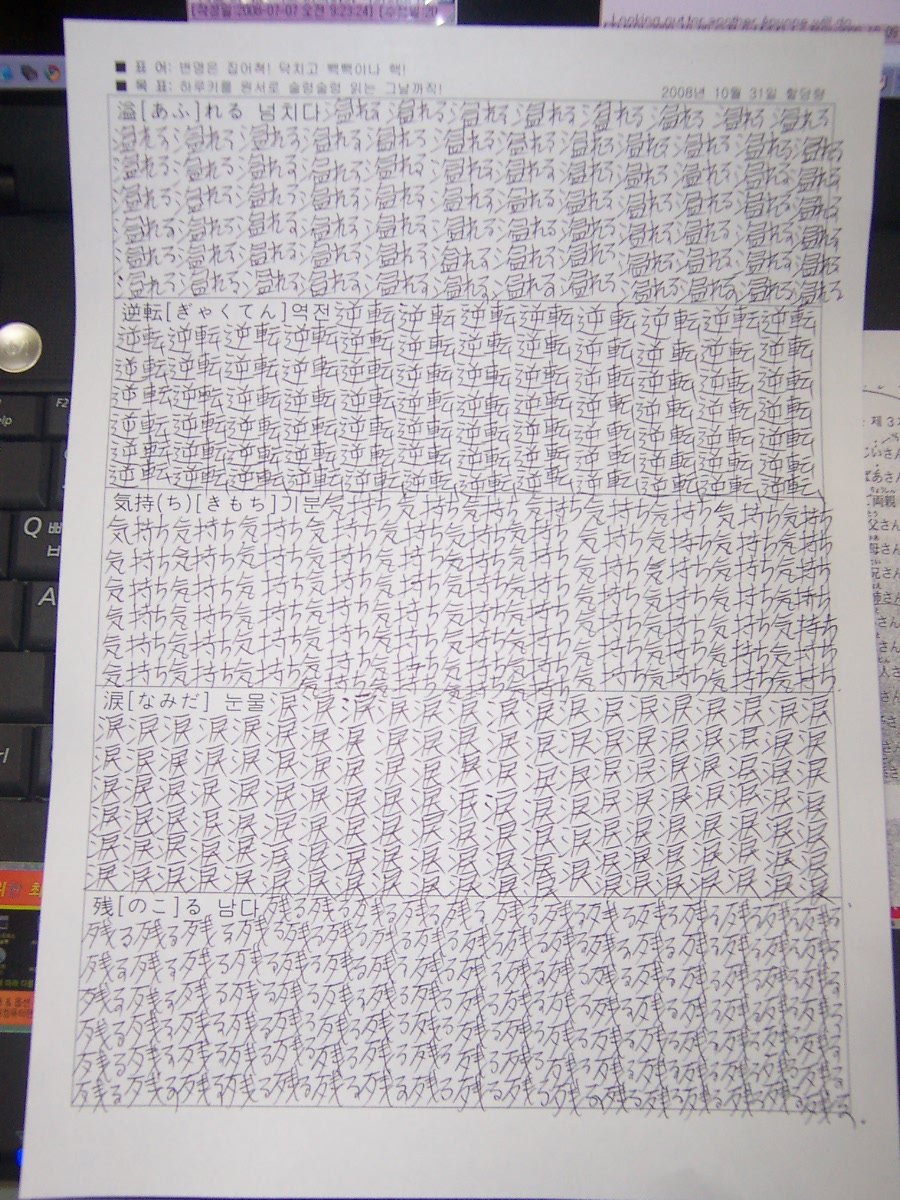 ■ 표 어: 변명은 집어쳐! 닥치고 빽빽이나 핵!
■ 목 표: 하루키를 원서로 술렁술렁 읽는 그날까지!
2008년 10월 31일 할당량
溢[あふ]れる 넘치다 溢れる 溢れる 溢れる 溢れる 溢れる 溢れる 溢れる 溢れる
溢れる 溢れる 溢れる 溢れる 溢れる 溢れる 溢れる 溢れる 溢れる 溢れる 溢れる 溢れる
溢れる 溢れる 溢れる 溢れる 溢れる 溢れる 溢れる 溢れる 溢れる 溢れる 溢れる 溢れる
溢れる 溢れる 溢れる 溢れる 溢れる 溢れる 溢れる 溢れる 溢れる 溢れる 溢れる 溢れる
溢れる 溢れる 溢れる 溢れる 溢れる 溢れる 溢れる 溢れる 溢れる 溢れる 溢れる 溢れる
溢れる 溢れる 溢れる 溢れる 溢れる 溢れる 溢れる 溢れる 溢れる 溢れる 溢れる 溢れる
溢れる 溢れる 溢れる 溢れる 溢れる 溢れる 溢れる 溢れる 溢れる 溢れる 溢れる 溢れる
逆転[ぎゃくてん]역전 逆転 逆転 逆転 逆転 逆転 逆転 逆転 逆転
逆転 逆転 逆転 逆転 逆転 逆転 逆転 逆転 逆転 逆転 逆転 逆転
逆転 逆転 逆転 逆転 逆転 逆転 逆転 逆転 逆転 逆転 逆転 逆転
逆転 逆転 逆転 逆転 逆転 逆転 逆転 逆転 逆転 逆転 逆転 逆転
逆転 逆転 逆転 逆転 逆転 逆転 逆転 逆転 逆転 逆転 逆転 逆転
逆転 逆転 逆転 逆転 逆転 逆転 逆転 逆転 逆転 逆転 逆転 逆転
逆転 逆転 逆転 逆転 逆転 逆転 逆転 逆転 逆転 逆転 逆転 逆転
気持(ち)[きもち]기분 気持ち 気持ち 気持ち 気持ち 気持ち 気持ち 気持ち 気持ち
気持ち 気持ち 気持ち 気持ち 気持ち 気持ち 気持ち 気持ち 気持ち 気持ち 気持ち 気持ち
気持ち 気持ち 気持ち 気持ち 気持ち 気持ち 気持ち 気持ち 気持ち 気持ち 気持ち 気持ち
気持ち 気持ち 気持ち 気持ち 気持ち 気持ち 気持ち 気持ち 気持ち 気持ち 気持ち 気持ち
気持ち 気持ち 気持ち 気持ち 気持ち 気持ち 気持ち 気持ち 気持ち 気持ち 気持ち 気持ち
気持ち 気持ち 気持ち 気持ち 気持ち 気持ち 気持ち 気持ち 気持ち 気持ち 気持ち 気持ち
気持ち 気持ち 気持ち 気持ち 気持ち 気持ち 気持ち 気持ち 気持ち 気持ち 気持ち 気持ち
涙[なみだ] 눈물 涙 涙 涙 涙 涙 涙 涙 涙 涙 涙 涙 涙 涙 涙 涙
涙 涙 涙 涙 涙 涙 涙 涙 涙 涙 涙 涙 涙 涙 涙 涙 涙 涙 涙 涙
涙 涙 涙 涙 涙 涙 涙 涙 涙 涙 涙 涙 涙 涙 涙 涙 涙 涙 涙 涙
涙 涙 涙 涙 涙 涙 涙 涙 涙 涙 涙 涙 涙 涙 涙 涙 涙 涙 涙 涙
涙 涙 涙 涙 涙 涙 涙 涙 涙 涙 涙 涙 涙 涙 涙 涙 涙 涙 涙 涙
涙 涙 涙 涙 涙 涙 涙 涙 涙 涙 涙 涙 涙 涙 涙 涙 涙 涙 涙 涙
涙 涙 涙 涙 涙 涙 涙 涙 涙 涙 涙 涙 涙 涙 涙 涙 涙 涙 涙 涙
残[のこ]る 남다 残る 残る 残る 残る 残る 残る 残る 残る 残る 残る
残る 残る 残る 残る 残る 残る 残る 残る 残る 残る 残る 残る 残る
残る 残る 残る 残る 残る 残る 残る 残る 残る 残る 残る 残る 残る
残る 残る 残る 残る 残る 残る 残る 残る 残る 残る 残る 残る 残る
残る 残る 残る 残る 残る 残る 残る 残る 残る 残る 残る 残る 残る
残る 残る 残る 残る 残る 残る 残る 残る 残る 残る 残る 残る 残る
残る 残る 残る 残る 残る 残る 残る 残る 残る 残る 残る 残る 残る